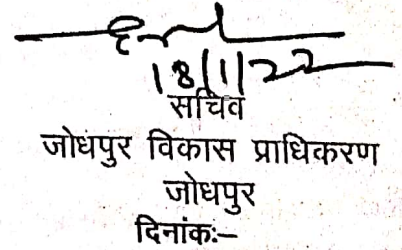 18/1/22
सचिव
जोधपुर विकास प्राधिकरण
जोधपुर
दिनांकः–